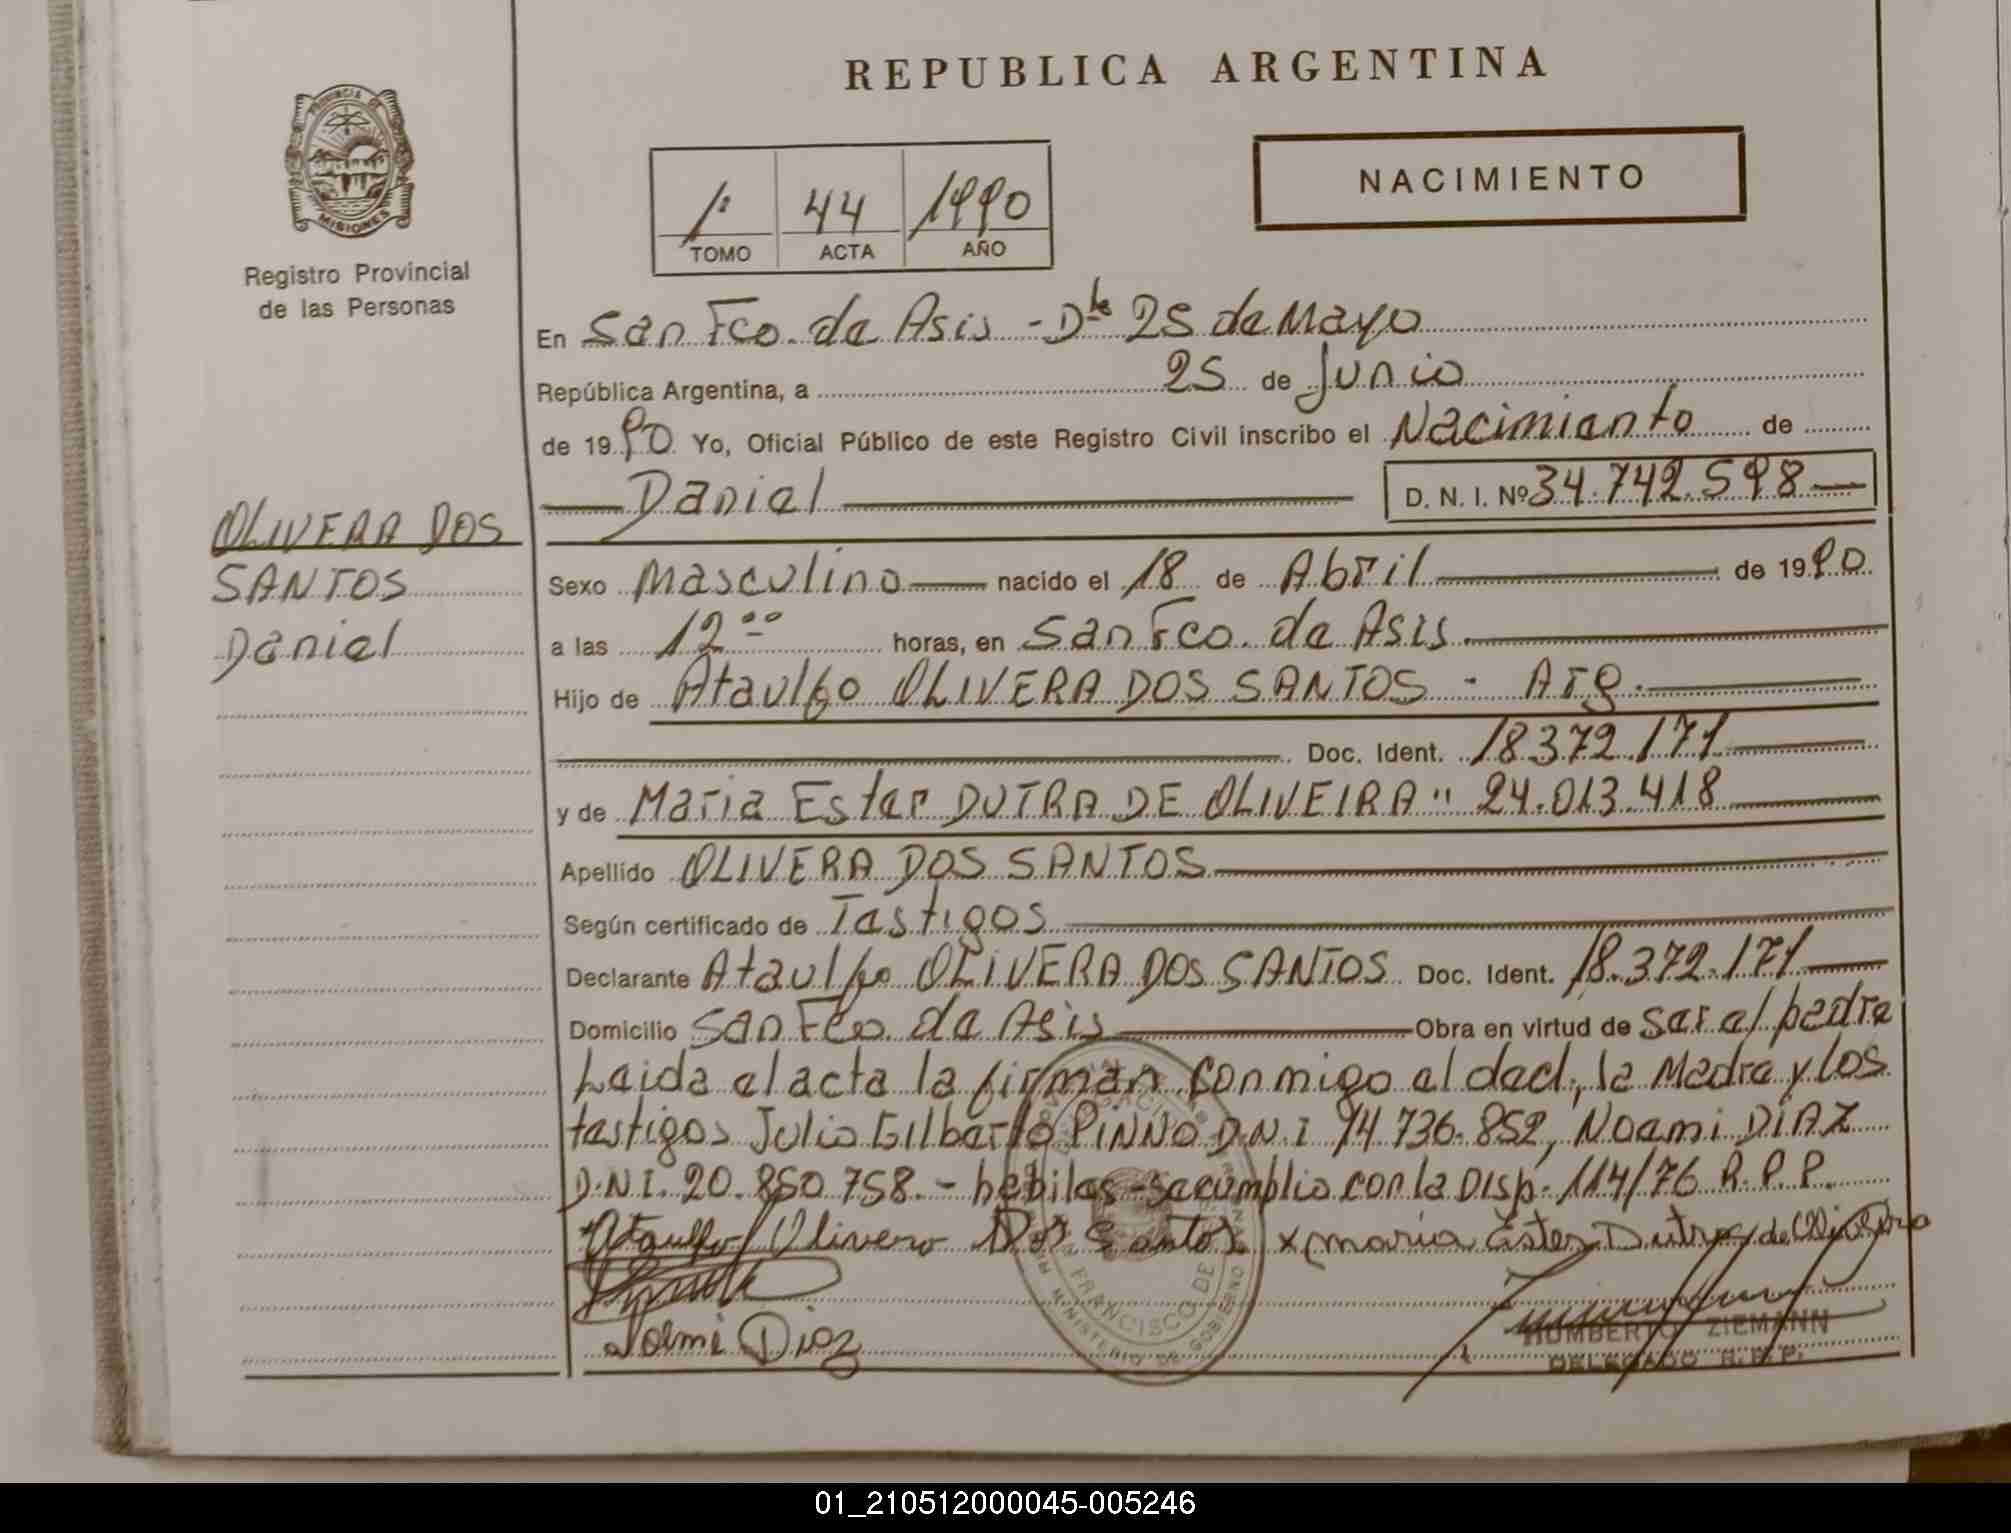 REPUBLICA ARGENTINA
PROVINCIA DE
MISIONES
Registro Provincial
de las Personas
NACIMIENTO
1º 44 1990
TOMO ACTA AÑO
En San Fco. de Asis - Dto 25 de Mayo
República Argentina, a 25 de Junio
de 1990 Yo, Oficial Público de este Registro Civil inscribo el Nacimiento de
Daniel D. N. I. Nº 34.742.598
OLIVERA DOS
SANTOS
Daniel
Sexo Masculino nacido el 18 de Abril de 1990
a las 12 00 horas, en San Fco. de Asis
Hijo de Ataulfo OLIVERA DOS SANTOS - Arg.
Doc. Ident. 18.372.171
y de Maria Ester DUTRA DE OLIVEIRA " 24.013.418
Apellido OLIVERA DOS SANTOS
Según certificado de Testigos
Declarante Ataulfo OLIVERA DOS SANTOS Doc. Ident. 18.372.171
Domicilio San Fco. de Asis Obra en virtud de ser el padre
Leida el acta la firman conmigo el decl., la Madre y los
testigos Julio Gilberto PINNO D.N.I 14.736.852, Noemi DIAZ
D.N.I. 20.850.758. - hebiles - se cumplio con la Disp. 114/76 R.P.P.
Ataulfo Olivera Dos Santos x maria Ester Dutra de Oliveira
Noemi Diaz
HUMBERTO ZIEMANN
DELEGADO R.P.P.
FRANCISCO DE
MINISTERIO DE GOBIERNO
01_210512000045-005246